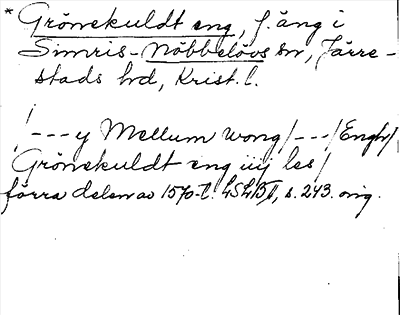 * Grönekuldt eng, f. äng i
Simris-Nöbbelövs sn, Järre-
stads hd, Krist. l.
/---y Mellum wong/---/Engh/
Grönekuldt eng iiij les/
förra delen av 1570-t. LSLB1, s. 243. orig.